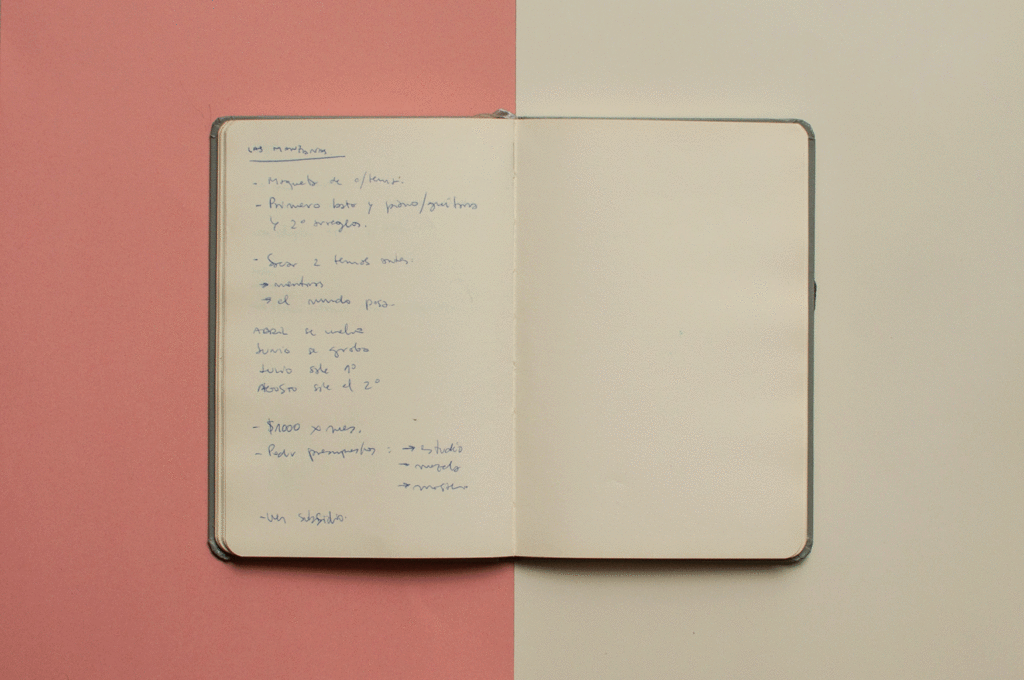 LAS MANZANAS
- Maqueta de c/tema.
- Primero bata y piano/guitarras
y 2º arreglos.
- Sacar 2 temas antes.
→ mentiras
→ el mundo pasa.
ABRIL se
Junio se graba
Julio sale 1º
AGOSTO sale el 2º
- $1000 x mes.
- Pedir presupuestos : → estudio
→ mezcla
→ master
- Ver subsidio.